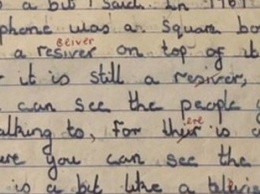 a bit I said. In 1961
phone was a square bo
ceiver
a resiver on top of it
r it is still a resiver,
can see the people
alking to, For their is
ere
ure you can see the
is a bit like a